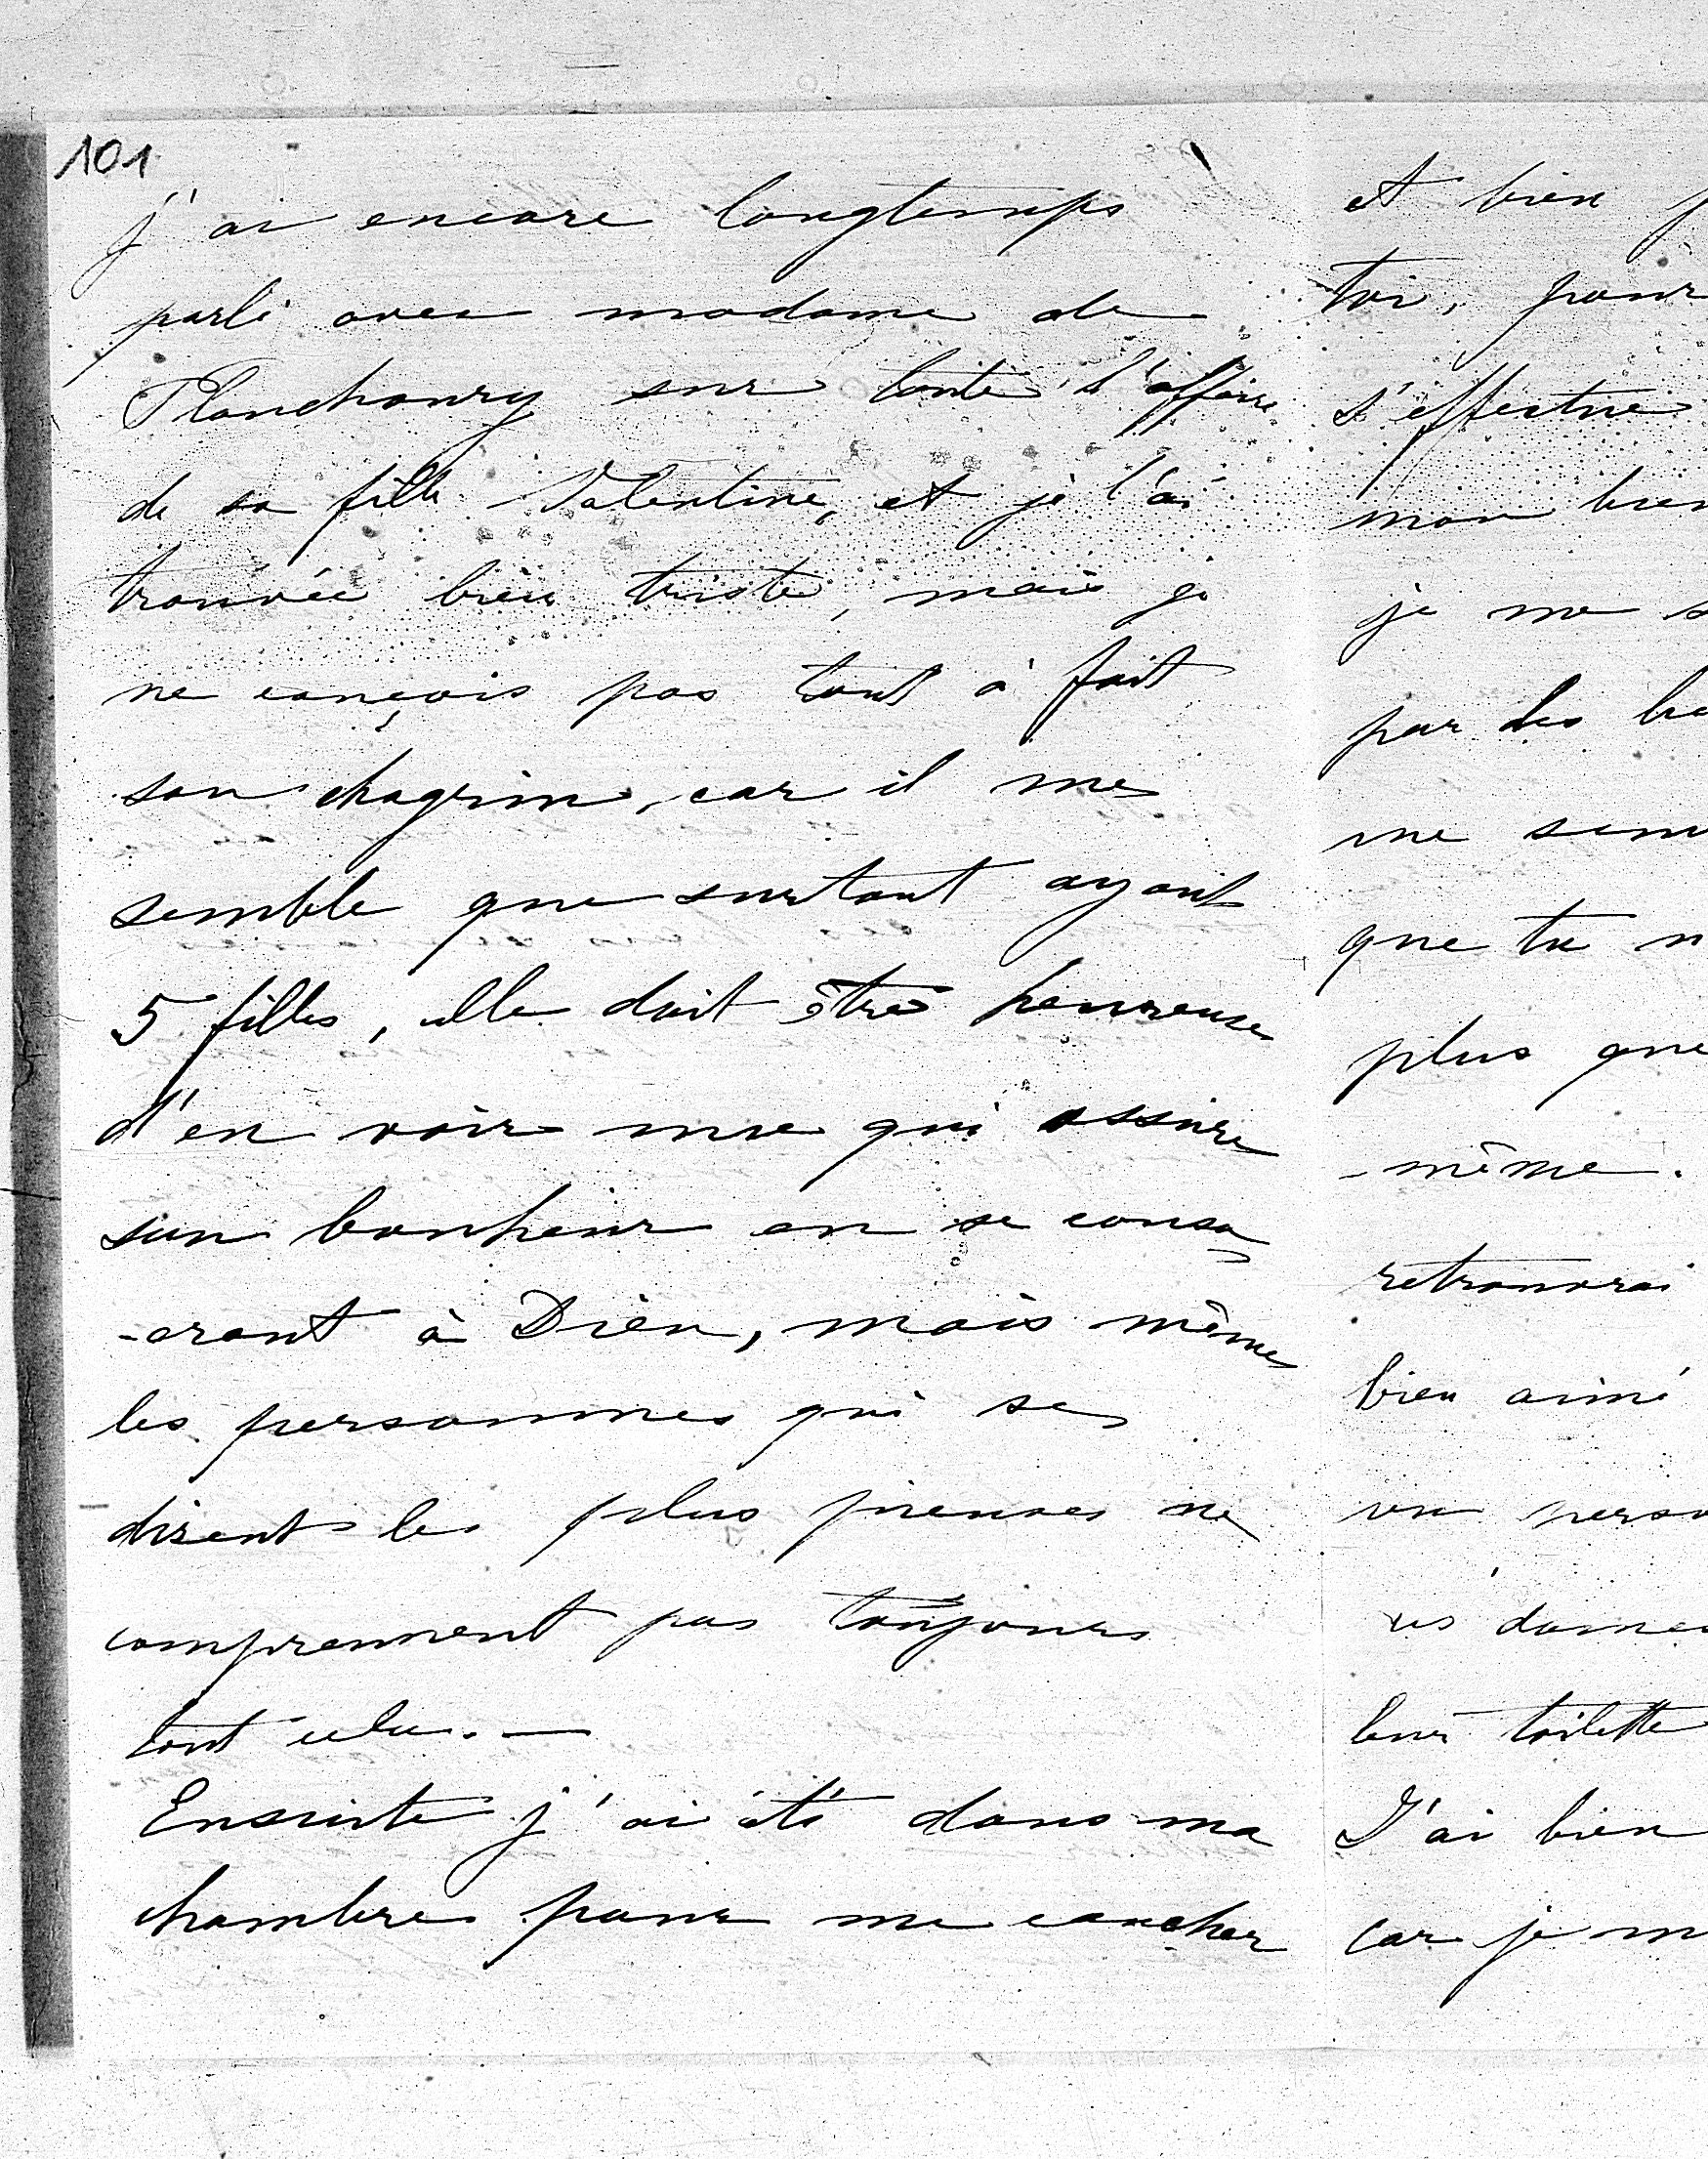 101
j'ai encore longtemps
parlé avec madame de
Planchoury sur toute l'affaire
de sa fille Valentine, et je l'ai
trouvée bien triste, mais je
ne conçois pas tout à fait
son chagrin, car il me
semble que surtout ayant
5 filles, elle doit être heureuse
d'en voir une qui assure
son bonheur en se consa
-crant à Dieu, mais même
les personnes qui se
disent les plus pieuses ne
comprennent pas toujours
tout cela. —
Ensuite j'ai été dans ma
chambre pour me coucher
et bien
toi, pour
s'effectue
mon bien
je me s
par les
me sem
que tu n
plus que
-même.
retrouvrai
bien aimé
un perso
us dame
leur toilette
J'ai bien
car je m